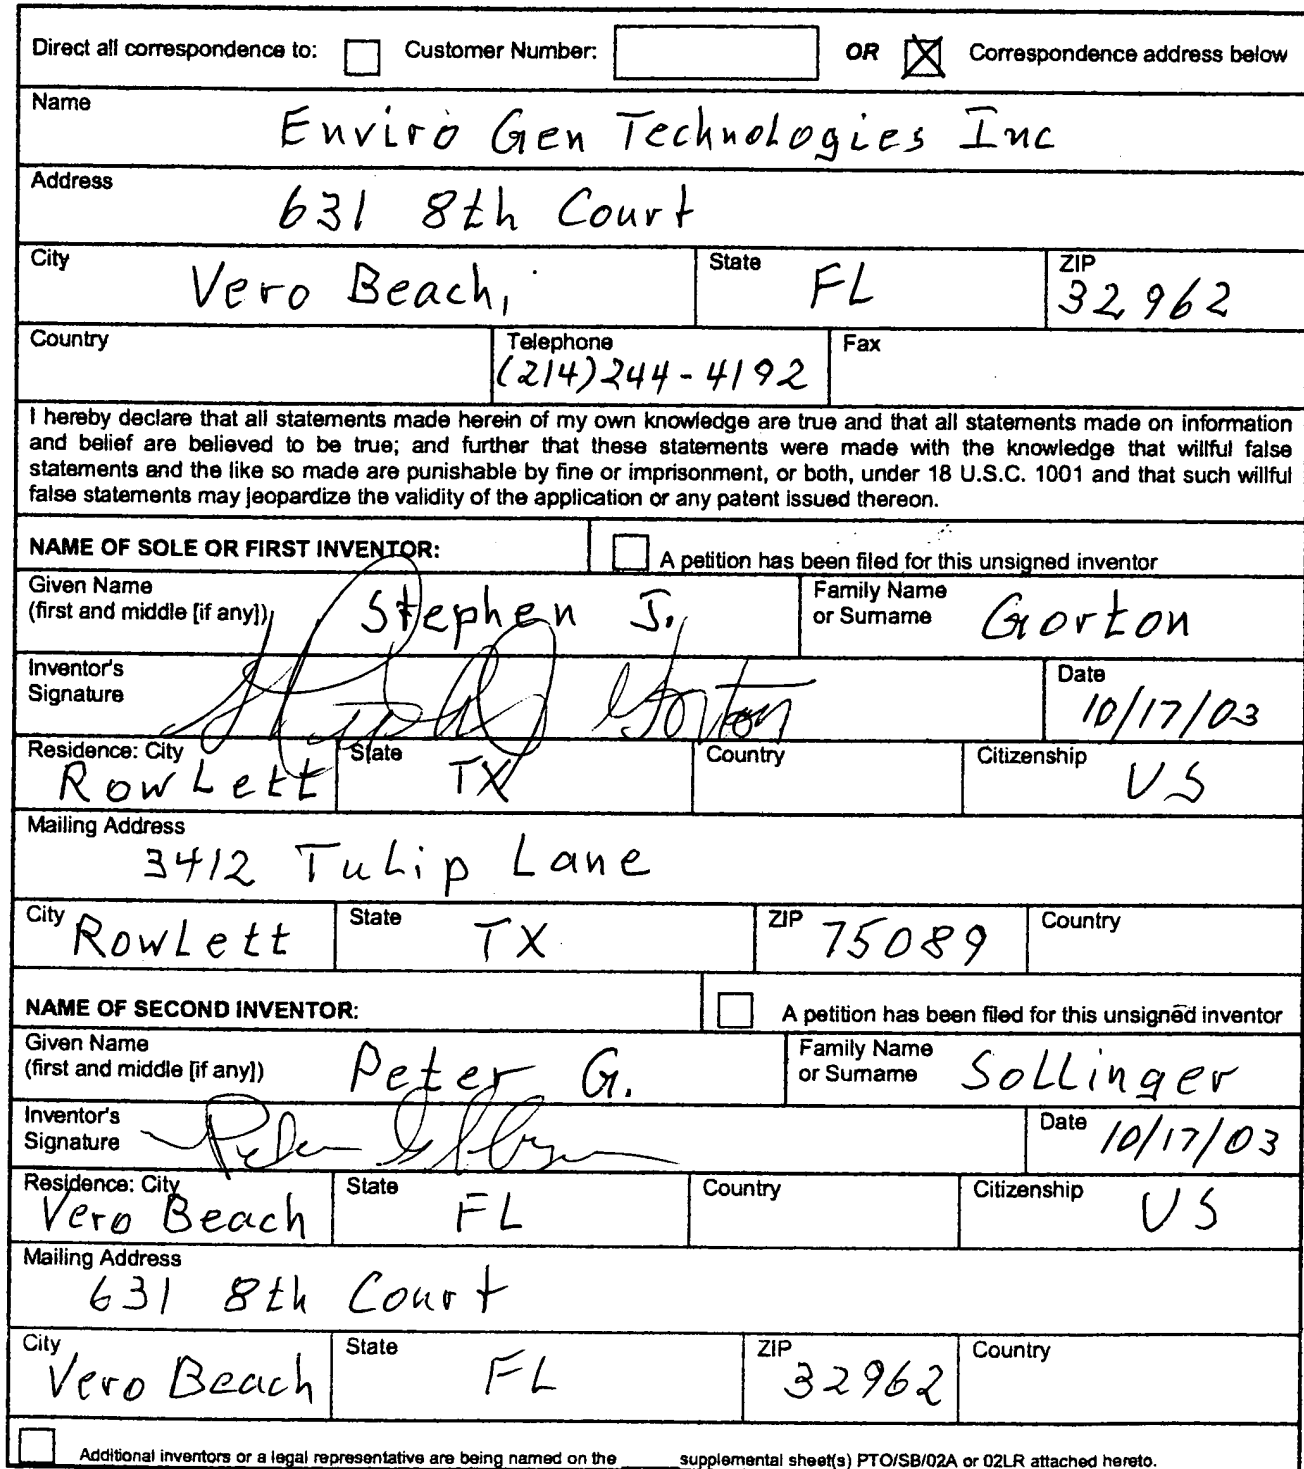 Direct all correspondence to: Customer Number: OR Correspondence address below
Name
Enviro Gen Technologies Inc
Address
631 8th Court
City State ZIP
Vero Beach, FL 32962
Country Telephone Fax
(214)244-4192
I hereby declare that all statements made herein of my own knowledge are true and that all statements made on information
and belief are believed to be true; and further that these statements were made with the knowledge that willful false
statements and the like so made are punishable by fine or imprisonment, or both, under 18 U.S.C. 1001 and that such willful
false statements may jeopardize the validity of the application or any patent issued thereon.
NAME OF SOLE OR FIRST INVENTOR: A petition has been filed for this unsigned inventor
Given Name Family Name
(first and middle [if any]) Stephen J. or Surname Gorton
Inventor's Date
Signature Gorton 10/17/03
Residence: City State Country Citizenship
Rowlett TX US
Mailing Address
3412 Tulip Lane
City Rowlett State TX ZIP 75089 Country
NAME OF SECOND INVENTOR: A petition has been filed for this unsigned inventor
Given Name Family Name
(first and middle [if any]) Peter G. or Surname Sollinger
Inventor's Date 10/17/03
Signature
Residence: City State Country Citizenship
Vero Beach FL US
Mailing Address
631 8th Court
City State ZIP Country
Vero Beach FL 32962
Additional inventors or a legal representative are being named on the _____ supplemental sheet(s) PTO/SB/02A or 02LR attached hereto.